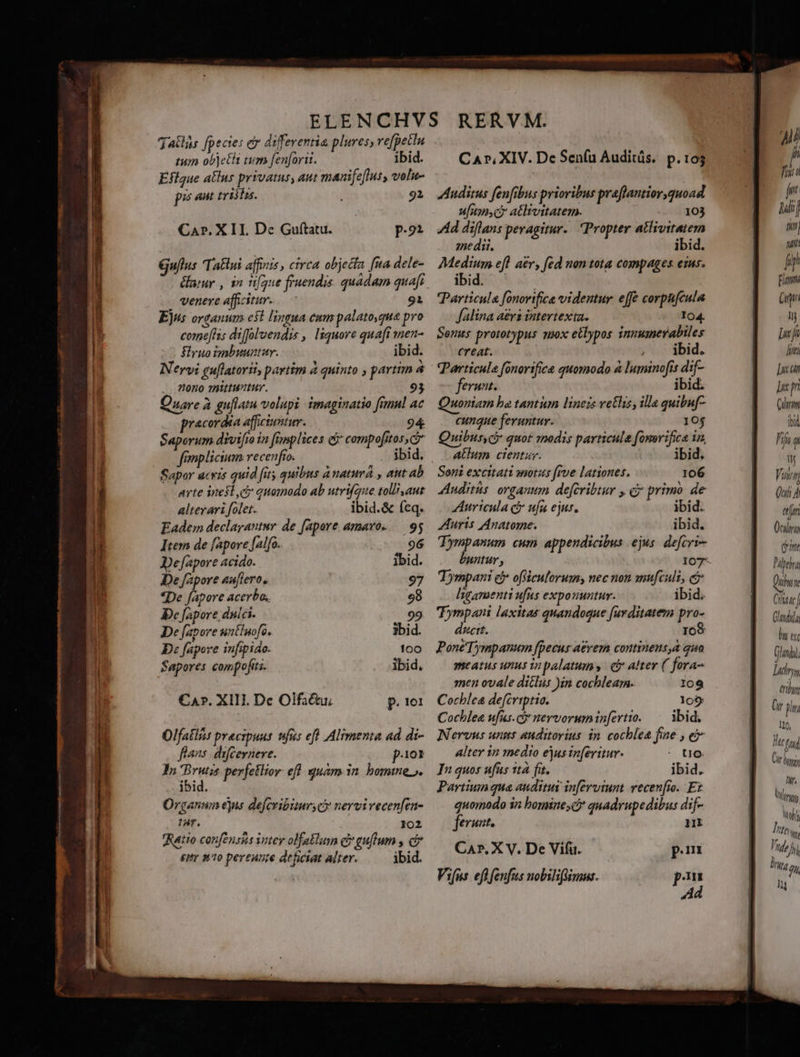 ELENCHVS RERVM.
Tactûs ſpecies & differentia plures, reſpectu
tum objecti tum ſenſorii. ibid.
Eſtque actus privatus, aut manifeſtus, volu-
pis aut triſtis. 92
CAP. XII. De Guſtatu. p.92
Guſtus Tactui affinis, circa objecta ſua dele-
ctatur, in iiſque fruendis quâdam quaſi
venere afficitur. 92
Ejus organum eſt lingua cum palato, quæ pro
comeſtis diſſolvendis, liquore quaſi men-
ſtruo imbuuntur. ibid.
Nervi guſtatorii, partim à quinto, partim à
nono mittuntur. 93
Quare à guſtatu volupi imaginatio ſimul ac
præcordia afficiuntur. 94
Saporum diviſio in ſimplices & compoſitos, &
ſimplicium recenſio. ibid.
Sapor acris quid ſit, quibus à naturâ, aut ab
arte ineſt, & quomodo ab utriſque tolli, aut
alterari ſolet. ibid.& ſeq.
Eadem declarantur de ſapore amaro. 95
Item de ſapore ſalſo. 96
De ſapore acido. ibid.
De ſapore auſtero. 97
De ſapore acerbo. 98
De ſapore dulci. 99
De ſapore unctuoſo. ibid.
De ſapore inſipido. 100
Sapores compoſiti. ibid.
CAP. XIII. De Olfactu. p. 101
Olfactûs præcipuus uſus eſt Alimenta ad di-
ſtans diſcernere. p.101
In Brutis perfectior eſt quàm in homine.
ibid.
Organum ejus deſcribitur, & nervi recenſen-
tur. 102
Ratio conſensûs inter olfactum & guſtum, &
cur uno pereunte deficiat alter. ibid.
CAP. XIV. De Senſu Auditûs. p.103
Auditus ſenſibus prioribus præſtantior, quoad
uſum, & activitatem. 103
Ad diſtans peragitur. Propter activitatem
medii, ibid.
Medium eſt aër, ſed non tota compages ejus.
ibid.
Particulæ ſonorificæ videntur eſſe corpuſcula
ſalina aëri intertexta. 104
Sonus prototypus mox ectypos innumerabiles
creat. ibid.
Particulæ ſonorificæ quomodo à luminoſis dif-
ferunt. ibid.
Quoniam hæ tantùm lineis rectis, illæ quibuſ-
cunque feruntur. 105
Quibus, & quot modis particulæ ſonorificæ in
actum cientur. ibid.
Soni excitati motus ſive lationes. 106
Auditûs organum deſcribitur, & primò de
Auricula & uſu ejus. ibid.
Auris Anatome. ibid.
Tympanum cum appendicibus ejus deſcri-
buntur, 107
Tympani & oſſiculorum, nec non muſculi, &
ligamenti uſus exponuntur. ibid.
Tympani laxitas quandoque ſurditatem pro-
ducit. 108
Ponè Tympanum ſpecus aërem continens, à quo
meatus unus in palatum, & alter ( fora-
men ovale dictus )in cochleam. 109
Cochlea deſcriptio. 109
Cochlea uſus. & nervorum inſertio. ibid.
Nervus unus auditorius in cochlea fine, &
alter in medio ejus inſeritur. 110
In quos uſus ita fit. ibid.
Partium quæ auditui inſerviunt recenſio. Et
quomodo in homine, & quadrupedibus dif-
ferunt. 111
CAP. XV. De Viſu. p.111
Viſus eſt ſenſus nobiliſſimus. p.111
Ad